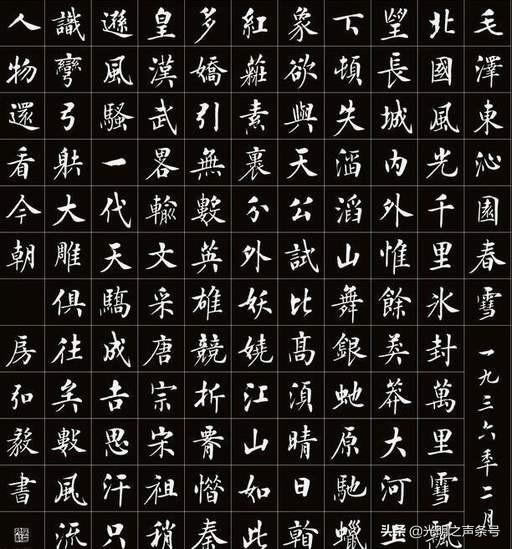 毛澤東沁園春雪 一九三六年二月
北國風光千里冰封萬里雪飄
望長城内外惟餘莽莽大河上
下頓失滔滔山舞銀虵原馳蠟
象欲與天公試比高須晴日看
紅裝素裹分外妖嬈江山如此
多嬌引無數英雄競折腰惜秦
皇漢武畧輸文采唐宗宋祖稍
遜風騷一代天驕成吉思汗只
識彎弓射大雕俱往矣數風流
人物還看今朝
房弘毅書
头条 @光明之声条号